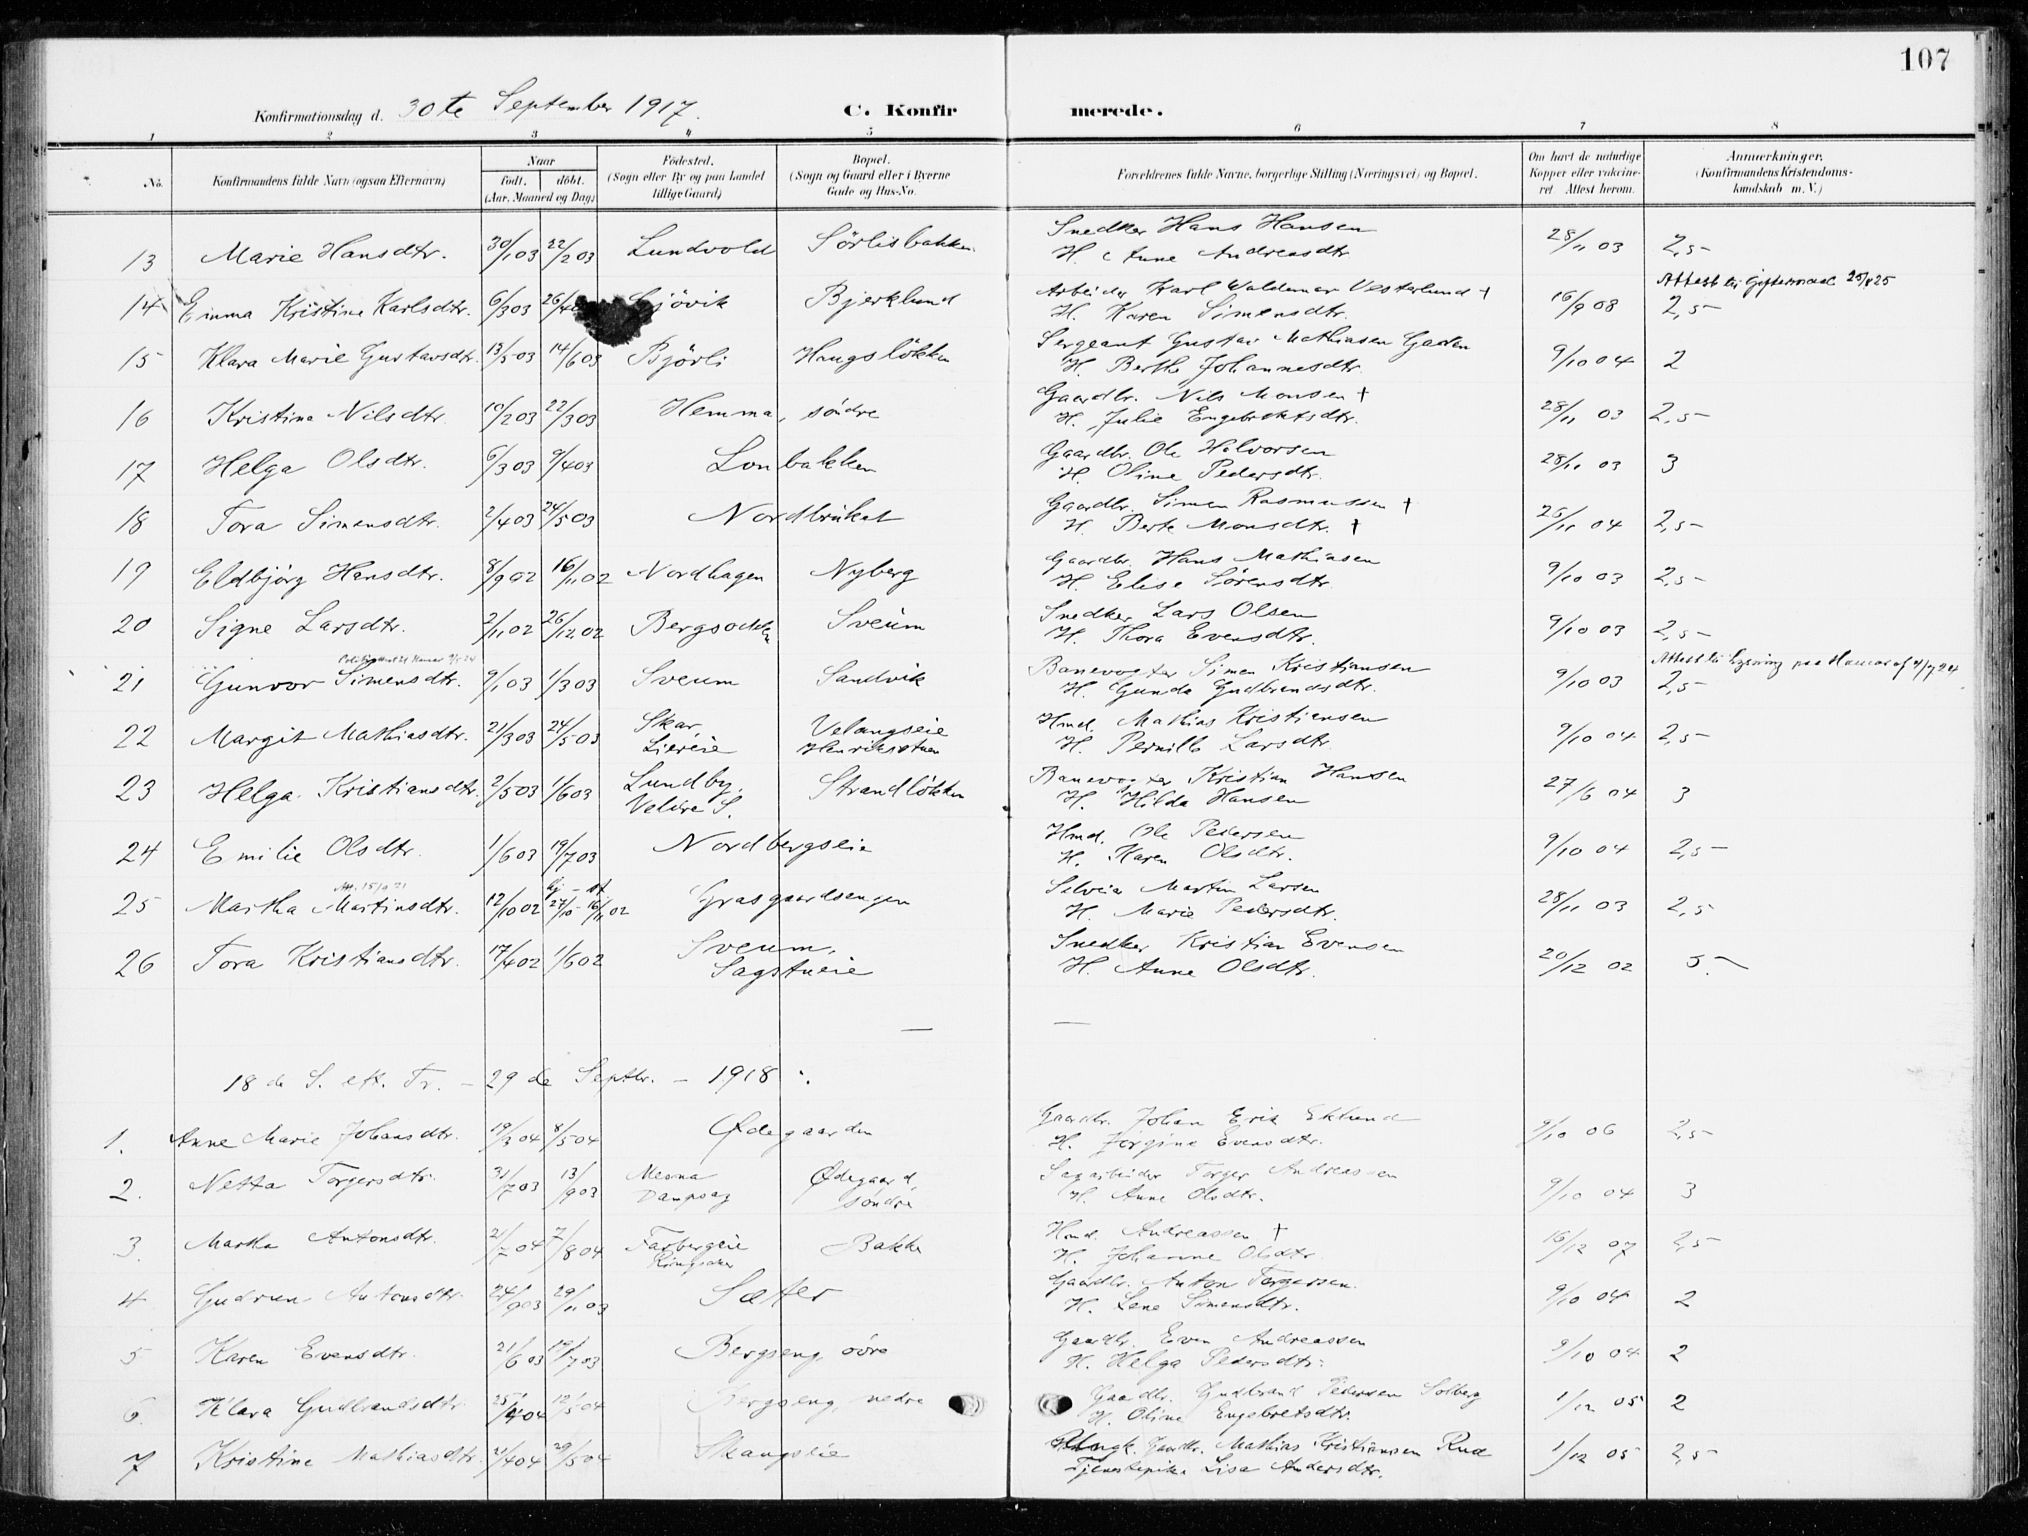 107
Konfirmationsdag d. 30te September 1917. C. Konfirmerede.
1 2 3 4 5 6 7 8
No. Konfirmandens fulde Navn (ogsaa Efternavn) Naar født. døbt. (Aar, Maaned og Dag) Fødested. (Sogn eller By og paa Landet tillige Gaard) Bopæl. (Sogn og Gaard eller i Byerne Gade og Hus-No. Forældrenes fulde Navne, borgerlige Stilling (Næringsvei) og Bopæl. Om havt de naturlige Kopper eller vakcineret. Attest herom. Anmærkninger. (Konfirmandens Kristendomskundskab m. V.)
13 Marie Hansdtr. 30/1 03 22/2 03 Lundvold Sörlisbakken. Snedker Hans Hansen 28/11 03 2,5-
H. Anne Andreasdtr.
Attest til Giftermaal
14 Emma Kristine Karlsdtr. 6/3 03 26/4 Gjövik Bjerklund Arbeider Karl Waldemar Vesterlund + 16/9 08 2,5-
H. Karen Simensdtr.
15 Klara Marie Gustavsdtr. 13/5 03 14/6 03 Björli Haugslökken Sergeant Gustav Mathiasen Gaden 9/10 04 2
H. Berthe Johannesdtr.
16 Kristine Nilsdtr. 10/2 03 22/3 03 Hemma, söndre Gaardbr. Nils Monsen + 28/11 03 2,5-
H. Julie Engebretsdtr.
17 Helga Olsdtr. 6/3 03 9/4 03 Lonbakken Gaardbr. Ole Halvorsen 28/11 03 3
H. Oline Pedersdtr.
18 Tora Simensdtr. 2/4 03 24/5 03 Nordbruket Gaardbr. Simen Rasmussen + 26/11 04 2,5-
H. Berte Monsdtr. +
19 Eldbjörg Hansdtr. 8/9 02 16/11 02 Nordhagen Nyberg Gaardbr. Hans Mathiasen 9/10 03 2,5-
H. Elise Sörensdtr.
20 Signe Larsdtr. 2/11 02 26/12 02 Sveum Snedker Lars Olsen 9/10 03 2,5-
H. Thora Evensdtr.
21 Gunvor Simensdtr. 9/1 03 1/3 03 Sveum Sandvik Banevogter Simen Kristiansen 9/10 03 2,5-
H. Gunda Gudbrandsdtr.
Attest til lysning paa Hamar
22 Margit Mathiasdtr. 21/3 03 24/5 03 Skar, Liereie Velangseie Henrikstuen Hmd. Mathias Kristiansen 9/10 04 2,5-
H. Pernille Larsdtr.
23 Helga Kristiansdtr. 2/5 03 1/6 03 Lundby, Veldre S. Strandlökken Banevogter Kristian Hansen 27/6 04 3
H. Hilda Hansen
24 Emilie Olsdtr. 1/6 03 19/7 03 Nordbergseie Hmd. Ole Pedersen 9/10 04 2,5-
H. Karen Olsdtr.
25 Martha Martinsdtr. 12/10 02 27/10 - 16/11 02 Grasgaardsengen Selveier Martin Larsen 28/11 03 2,5
H. Marie Pedersdtr.
26 Tora Kristiansdtr. 17/4 02 1/6 02 Sveum, Sagstueie Snedker Kristian Evensen 20/12 02 5-
H. Anne Olsdtr.
18de S. eft. Tr. - 29de Septbr. - 1918.
1. Anne Marie Johansdtr. 19/3 04 8/5 04 Ødegaarden Gaardbr. Johan Erik Eklund 9/10 06 2,5-
H. Jörgine Evensdtr.
2. Netta Torgersdtr. 31/7 03 13/9 03 Mesna Dampsag Ødegaard, söndre Sagarbeider Torger Andreassen 9/10 04 3
H. Anne Olsdtr.
3. Martha Antonsdtr. 2/7 04 7/8 04 Farbergeie Ringsaker Bakke Hmd. Andreassen + 16/12 07 2,5-
H. Johanne Olsdtr.
4 Gudrun Antonsdtr. 24/9 03 29/11 03 Sæter Gaardbr. Anton Torgersen. 9/10 04 2
H. Lene Simensdtr.
5 Karen Evensdtr. 21/6 03 19/7 03 Bergseng, övre Gaardbr. Even Andreassen 9/10 04 2
H. Helga Pedersdtr.
6. Klara Gudbrandsdtr. 25/4 04 12/5 04 Bergseng, nedre Gaardbr. Gudbrand Pedersen Solberg 1/12 05 2
H. Oline Engebretsdtr.
7 Kristine Mathiasdtr. 2/4 04 29/5 04 Skaugseie Ungk. Gaardbr. Mathias Kristiansen Rud 1/12 05 2,5-
Tjenestepike Lisa Andersdtr.